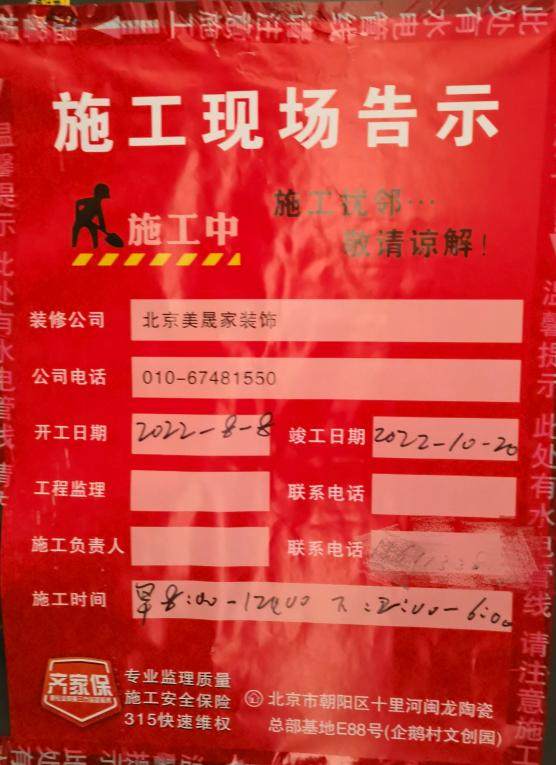 此处有水电管线 请注意施工 温馨提
施工现场告示
施工扰邻…
施工中
敬请谅解！
装修公司 北京美晟家装饰
公司电话 010-67481550
开工日期 2022-8-8 竣工日期 2022-10-20
工程监理 联系电话
施工负责人 联系电话
施工时间 早8:00-12:00 下:2:00-6:00
齐家保
专业监理质量
施工安全保险
315快速维权
北京市朝阳区十里河闽龙陶瓷
总部基地E88号(企鹅村文创园)
温馨提示 此处有水电管线 请
温馨提示 此处有水电管线 请注意施工